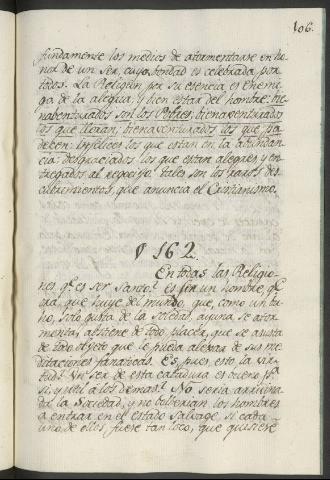 106.
fundamense los medios de atormentarse en ho-
nor de un ser, cuya bondad es celebrada por
todos. La Religion por su esencia es enemi-
ga de la alegria, y bien estar del hombre: bie-
naventurados son los Pobres; bienaventurados
los que lloran; bienaventurados los que pa-
decen: infelices los que estan en la abundan-
cia: desgraciados los que estan alegres y en-
tregados al regocijo! tales son los raros des-
cubrimientos, que anuncia el Cristianismo.
§ 162.
En todas las Religio-
nes q.e es ser Santo? es ser un hombre, q.e
ora, que huye del mundo, que, como un bu-
ho, solo gusta de la soledad, ayuna, se ator-
menta, abstiene de todo placer, que se asusta
de todo objeto que le pueda alexar de sus me-
ditaciones fanaticas. Es, pues, esto la vir-
tud? Un ser de esta catadura es bueno p.a
si, y util a los demas? No seria arruina-
da la Sociedad, y no bolverian los hombres
a entrar en el estado salvage, si cada
uno de ellos fuere tan loco, que quisiere